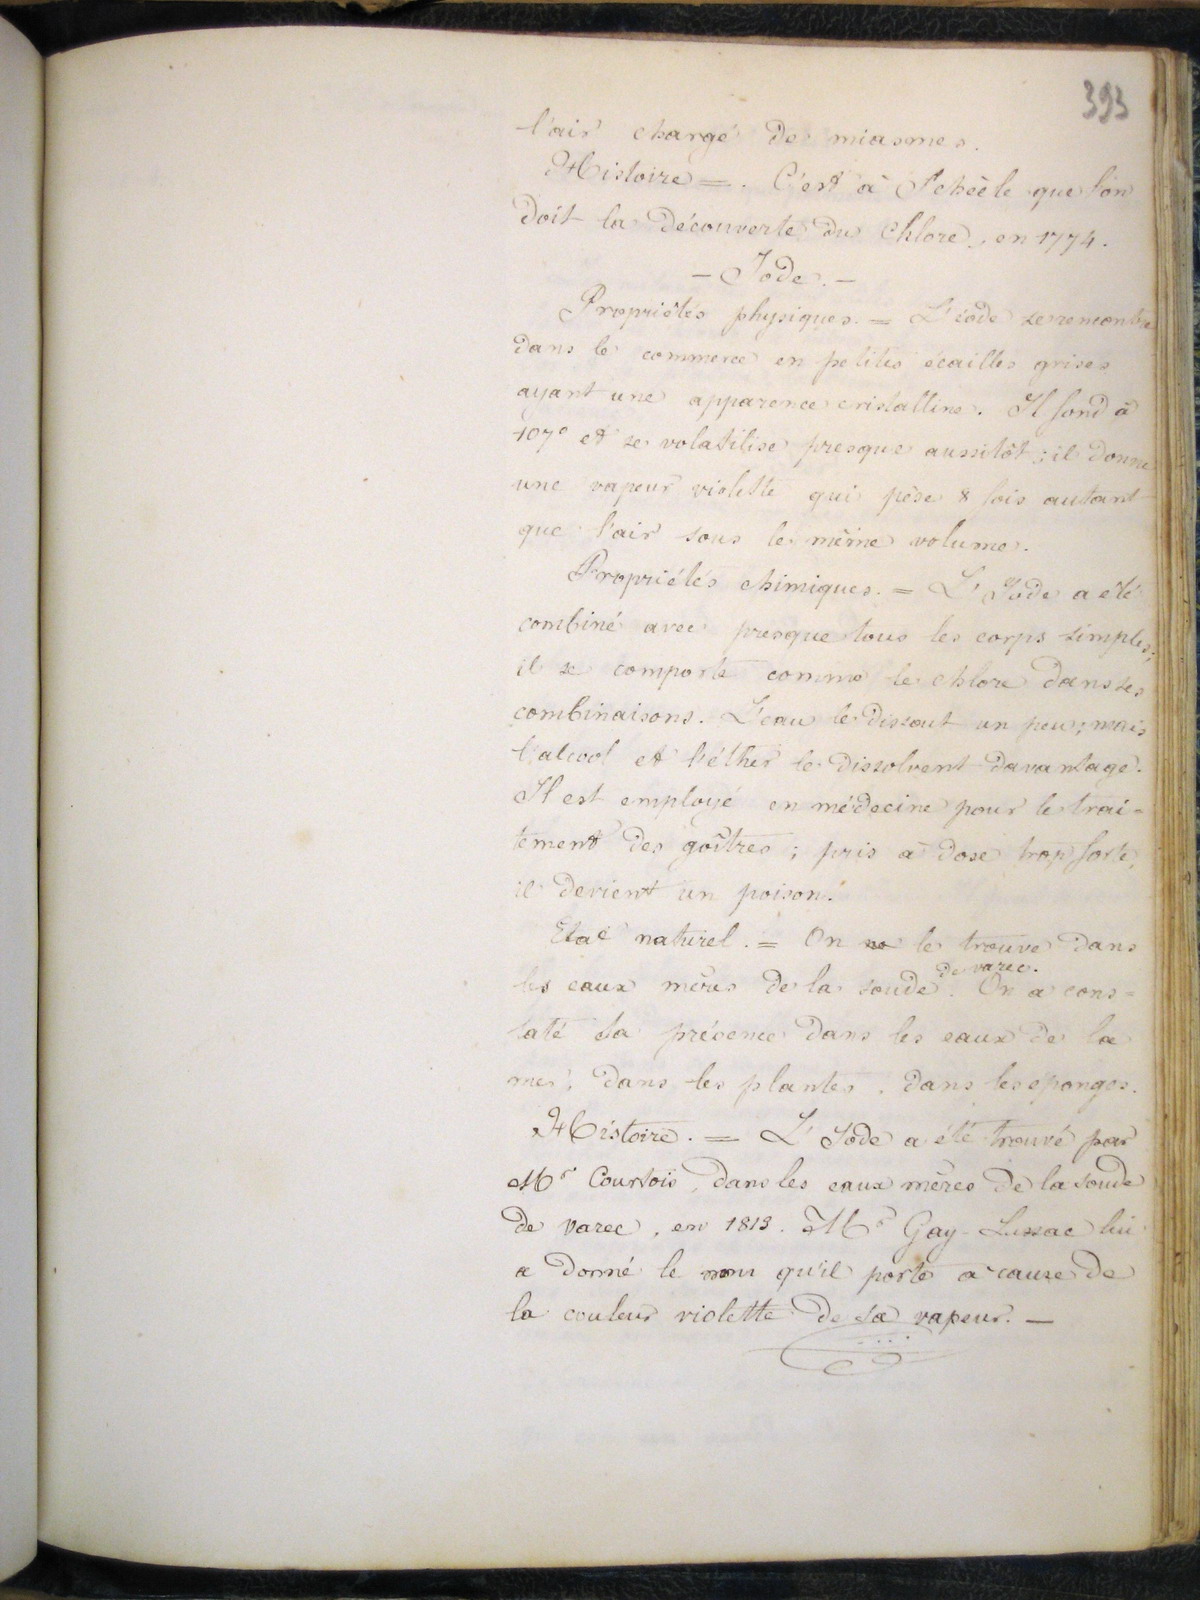 393
l'air chargé de miasmes.
Histoire =. C'est à Schèele que l'on
doit la découverte du Chlore, en 1774.
- Iode. -
Propriétés physiques. = L'iode se remontre
dans le commerce en petites écailles grises
ayant une apparence cristalline. Il fond à
107° et se volatilise presque aussitôt ; il donne
une vapeur violette qui pèse 8 fois autant
que l'air sous le même volume.
Propriétés chimiques. = L'Iode a été
combiné avec presque tous les corps simples;
il se comporte comme le chlore dans ses
combinaisons. L'eau le dissout un peu ; mais
l'alcool et l'éther le dissolvent davantage.
Il est employé en médecine pour le trai=
tement des goîtres ; pris à dose trop forte,
il devient un poison.
Etat naturel. = On ne le trouve dans
de varec.
les eaux mères de la soude. On a cons=
taté sa présence dans les eaux de la
mer, dans les plantes, dans les éponges.
Histoire. = L'Iode a été trouvé par
Mr Courtois, dans les eaux mères de la soude
de varec, en 1813. Mr Gay-Lussac lui
a donné le nom qu'il porte à cause de
la couleur violette de sa vapeur. —